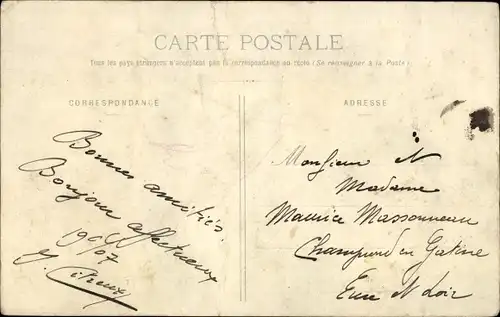 CARTE POSTALE
Tous les pays étrangers n'acceptent pas la correspondance au recto (Se renseigner à la Poste)
CORRESPONDANCE
ADRESSE
Bonnes amitiés.
Bonjour affectueux
Monsieur et
Madame
Maurice Massonneau
Champrond en Gatine
Eure et Loir